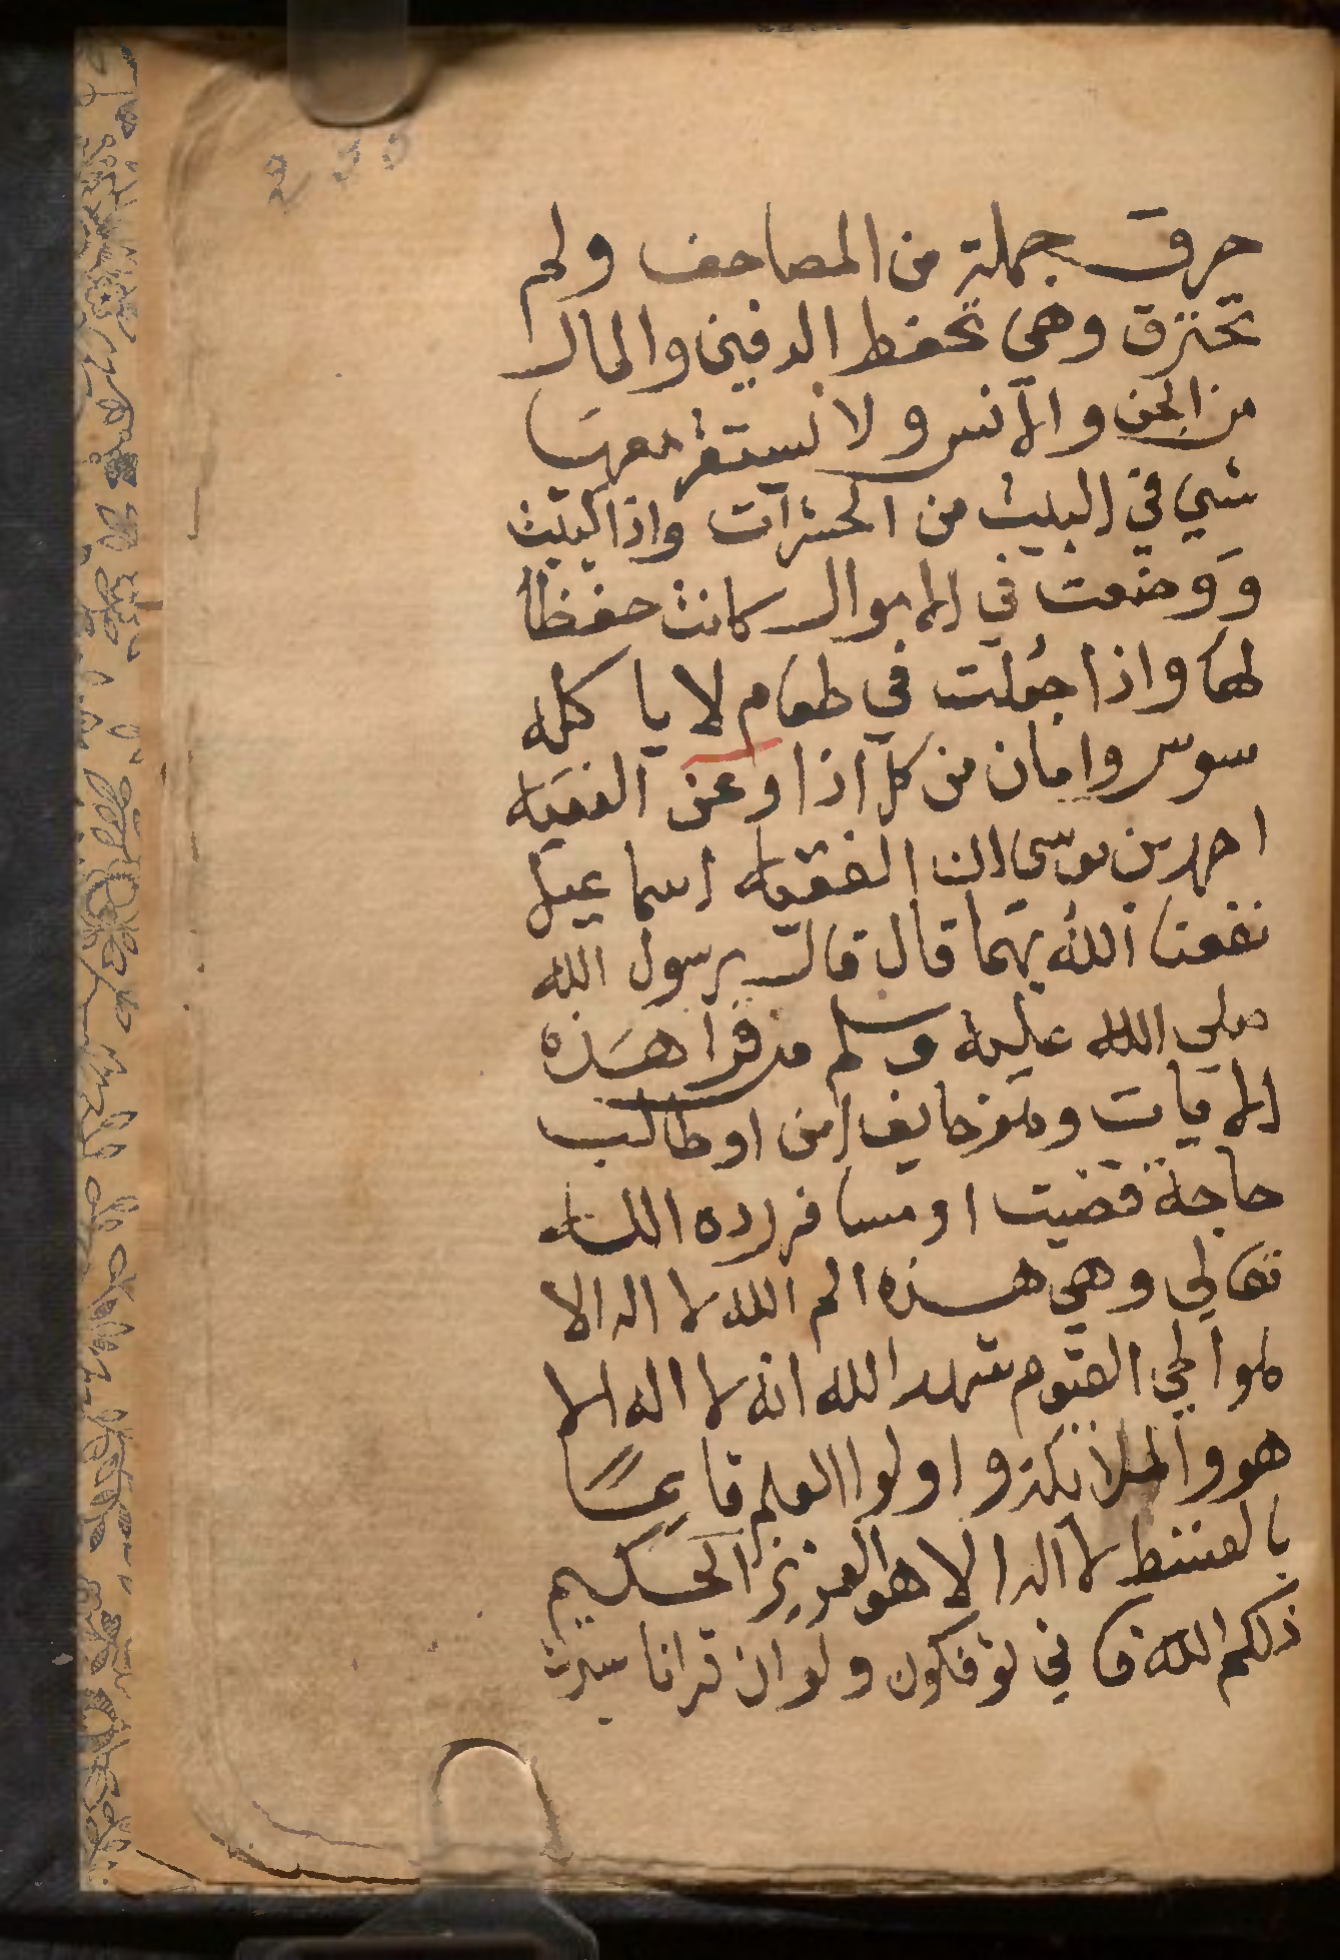 حرق جملة من المصاحف ولم
تحترق وهي تحفظ الدفين والمال
من الجن والانس ولا تستقر معها
شي في البيت من الحشرات واذا كتبت
ووضعت في الاموال كانت حفظا
لها واذا جعلت في طعام لا ياكله
سوس وامان من كل اذا وعن الفقيه
احمد بن موسى ابن الفقيه اسماعيل
نفعنا الله بهما قال قال رسول الله
صلي الله عليه وسلم من قرا هذه
الايات وهو خايف امن او طالب
حاجة قضيت او مسافر رده الله
تعالي وهي هذه الم الله لا اله الا
هو الحي القيوم شهد الله انه لا اله الا
هو والملائكة واولوا العلم قايمًا
بالقسط لا اله الا هو العزيز الحكيم
ذلكم الله فاني توفكون ولو ان قرانا سيرت